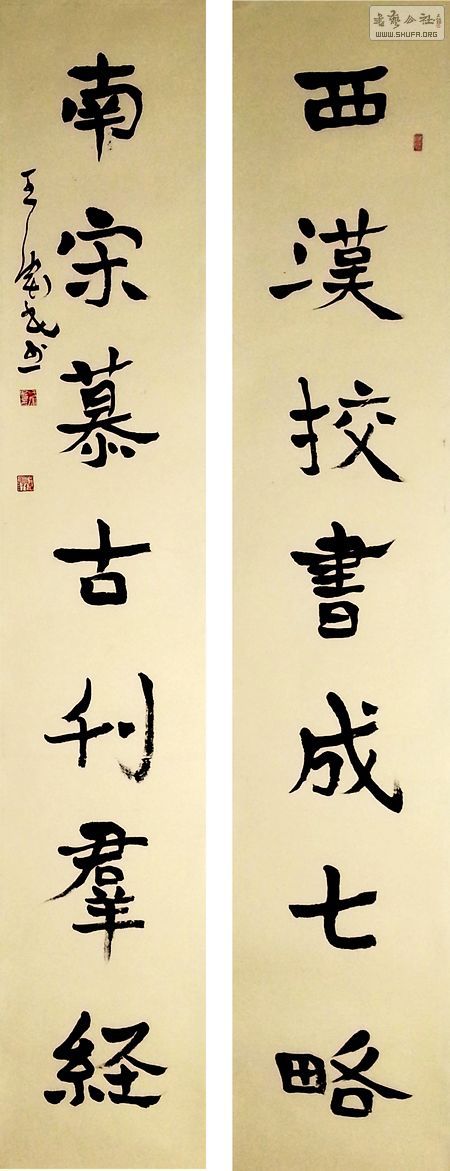 書藝公社
WWW.SHUFA.ORG
西漢挍書成七略
南宋慕古刊羣経
王